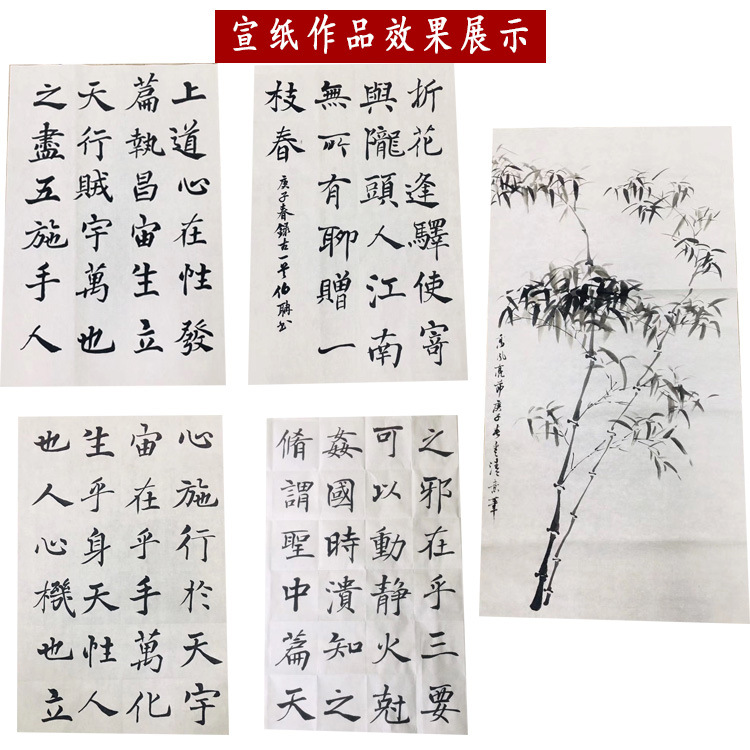 宣纸作品效果展示
上道心在性發
篇執昌宙生立
天行賊宇萬也
之盡五施手人
折花逢驛使寄
與隴頭人江南
無所有聊贈一
枝春
庚子春錄古一
高風亮節庚子
心施行於天宇
宙在乎手萬化
生乎身天性人
也人心機也立
之邪在乎三要
可以動靜火尅
姦國時潰知之
脩謂聖中篇天